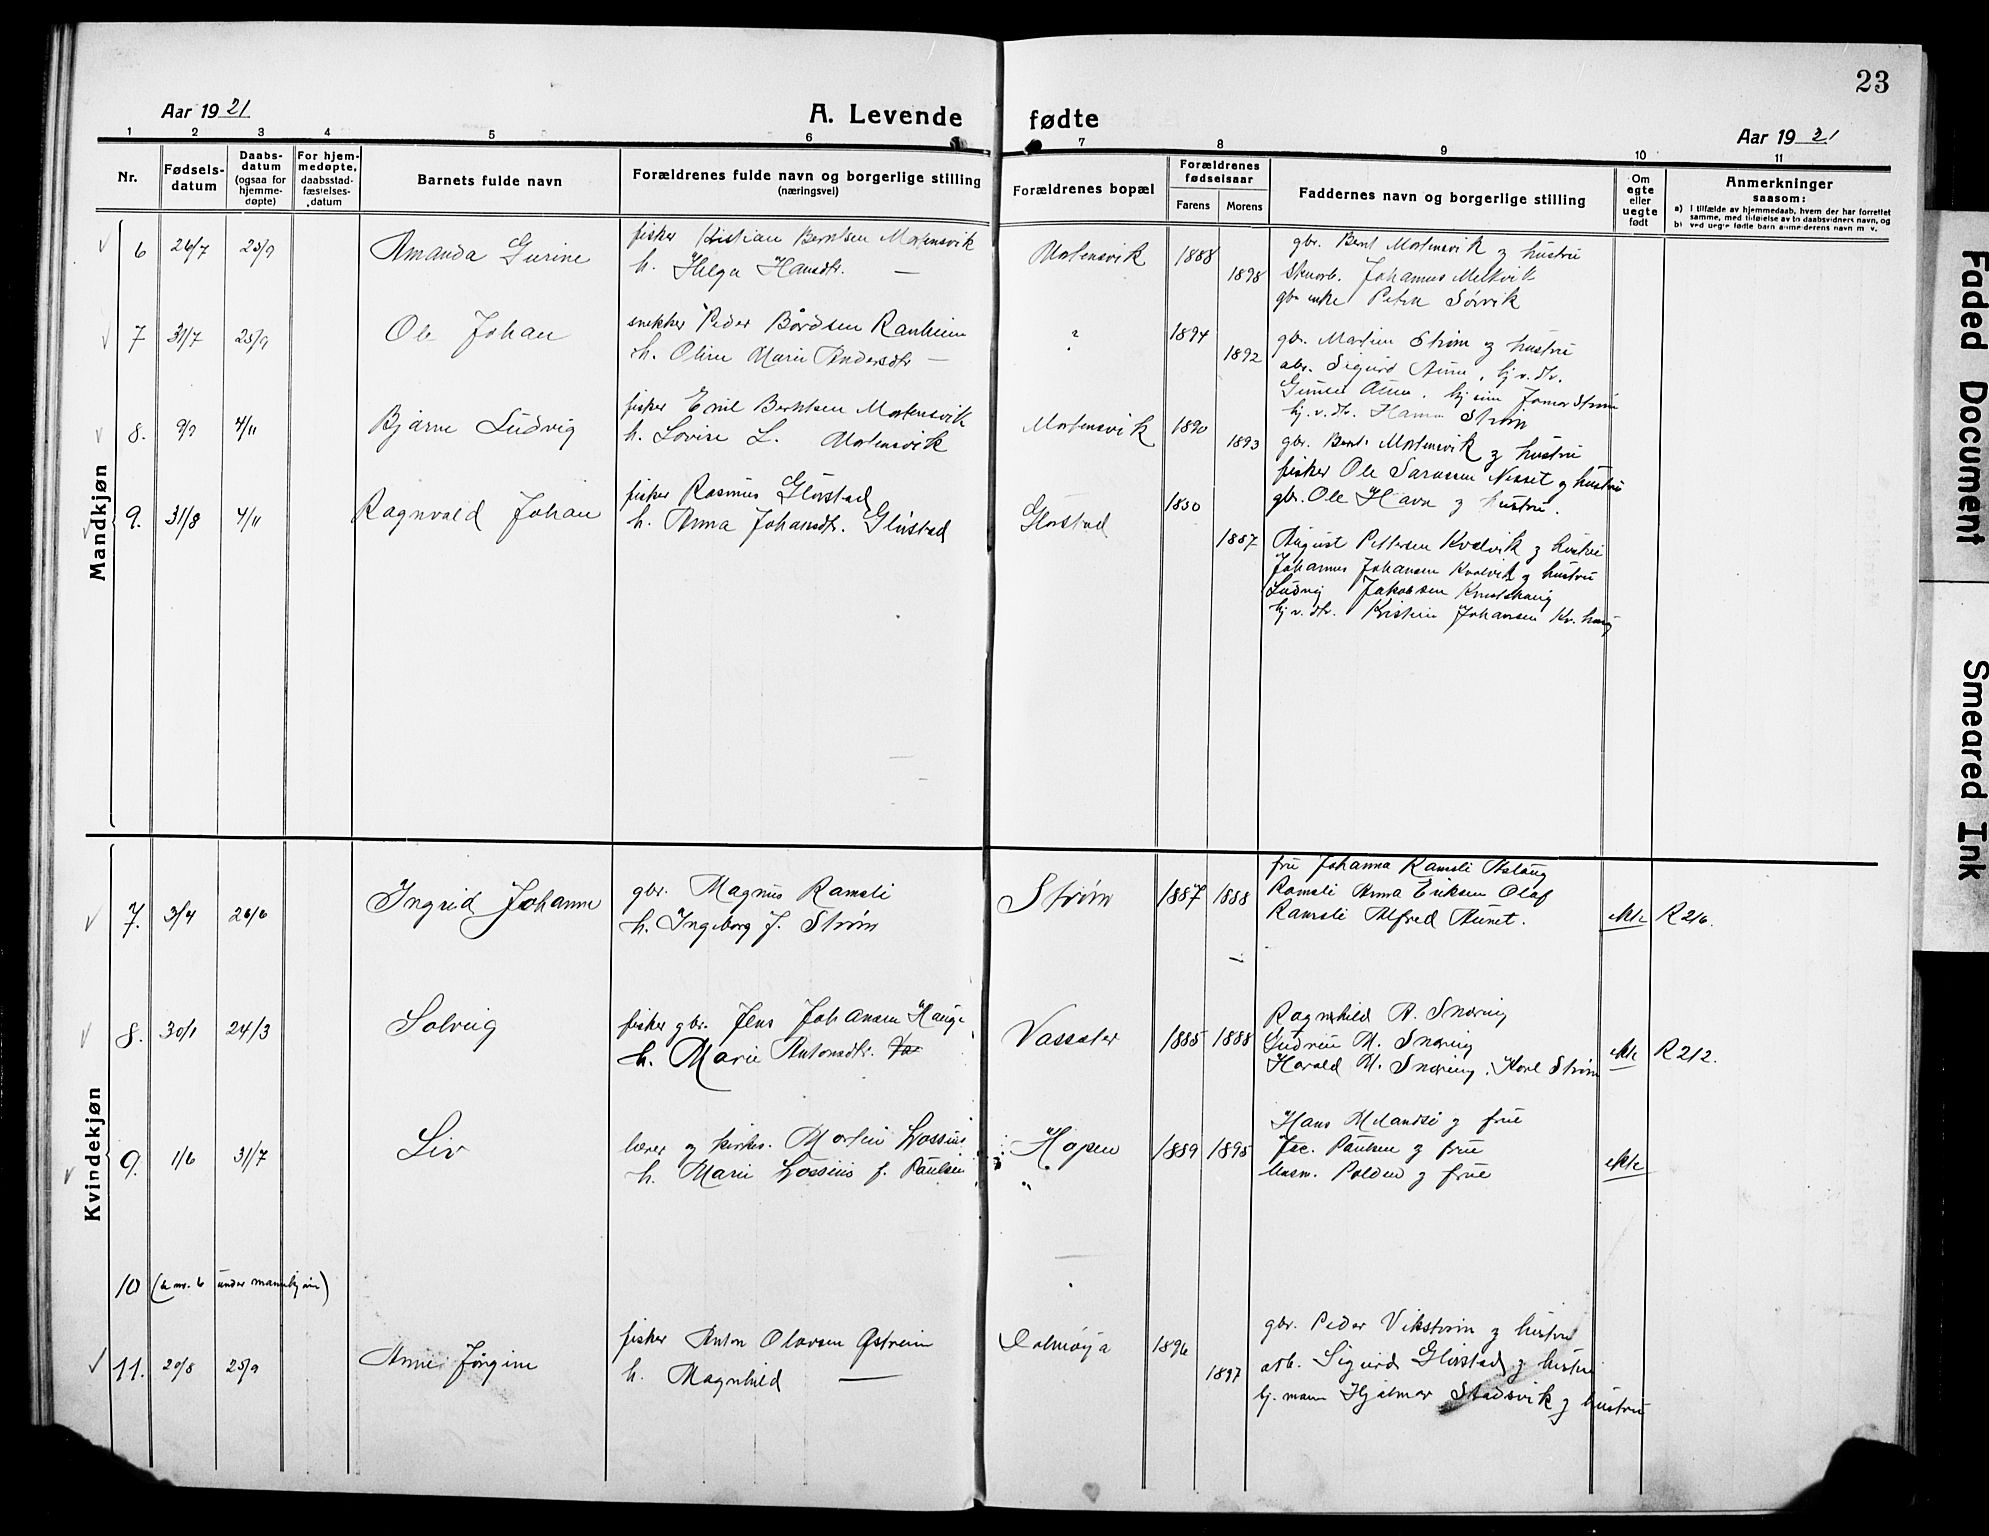 23
Aar 1921
A. Levende fødte
Aar 1921
1 2 3 4 5 6 7 8 9 10 11
Nr.
Fødsels-
datum
Daabs-
datum
(ogsaa for
hjemme-
døpte)
For hjem-
medøpte,
daabsstad-
fæstelses-
datum
Barnets fulde navn
Forældrenes fulde navn og borgerlige stilling
(næringsvei)
Forældrenes bopæl
Forældrenes
fødselsaar
Farens Morens
Faddernes navn og borgerlige stilling
Om
egte
eller
uegte
født
Anmerkninger
saasom:
a) I tilfælde av hjemmedaab, hvem der har forrettet
samme, med tilføielse av to daabsvidners navn, og
b) ved uegte fødte barn anmelderens navn m. v.
Mandkjøn
6 26/7 25/9 Amanda Gurine
fisker Kristian Berntsen Mortensvik
h. Helga Hansdtr. —
Mortensvik 1888 1898
gbr. Bernt Mortensvik og hustru
Johannes Melkvik
gbr enke Petra Sørvik
7 31/7 25/9 Ole Johan
snekker Peder Bårdsen Ranheim
h. Oline Marie Andersdtr —
? 1894 1892
gbr. Martin Strøm og hustru
arb. Sigurd Aune, kj.v. dtr.
Aune, kj. Strøm
kj. v. dtr. Hanna Strøm
8. 9/9 4/11 Bjarne Ludvig
fisker Emil Berntsen Mortensvik
h. Lovise L. Mortensvik
Mortensvik 1890 1893
gbr. Bernt Mortensvik og hustru
fisker Ole Nesset og hustru
gbr. Ole Havn og hustru.
9. 31/8 4/11 Ragnvald Johan
fisker Rasmus Glørstad
h. Anna Johansdtr. Glørstad
Glørstad 1887
August Pettersen Kvalvik og hustru
Johannes Johansen Kvalvik og hustru
Ludvig Jakobsen
kj. v. dtr. Kristine Johansen
Kvindekjøn
7. 3/4 26/6 Ingrid Johanne
gbr. Magnus Ramsli
h. Ingeborg J. Strøm
Strøm 1887 1888
fru Johanna Ramsli Aslaug
Ramsli Anna Eriksen Olaf
Ramsli Alfred Aunet.
ekte R 216.
8. 30/1 24/3 Solveig
fisker gbr. Jens Johansen Hauge
h. Marie Antonsdtr.
1885 1888
Ragnhild A. Snøring
Gudrun M. Snøring
Harald M. Snøring, Karl Strøm
ekte R 212.
9. 1/6 31/7 Liv
lærer og kirkes. Martin Lossius
h. Marie Lossius f. Paulsen
Hopen 1889 1895
Hans Melandsø og frue
Jac. Paulsen og frue
Rasm. Polden og frue
ekte
10 (se nr. 6 under mannkjøn)
11. 20/8 25/9 Anne Jørgine
fisker Anton Olavsen
h. Magnhild —
Dolmøya 1896 1897
gbr. Peder Vikstrøm og hustru
arb. Sigurd Glørstad og hustru
kj. mann Hjalmar Stadsvik og hustru
Faded Document
Smeared Ink